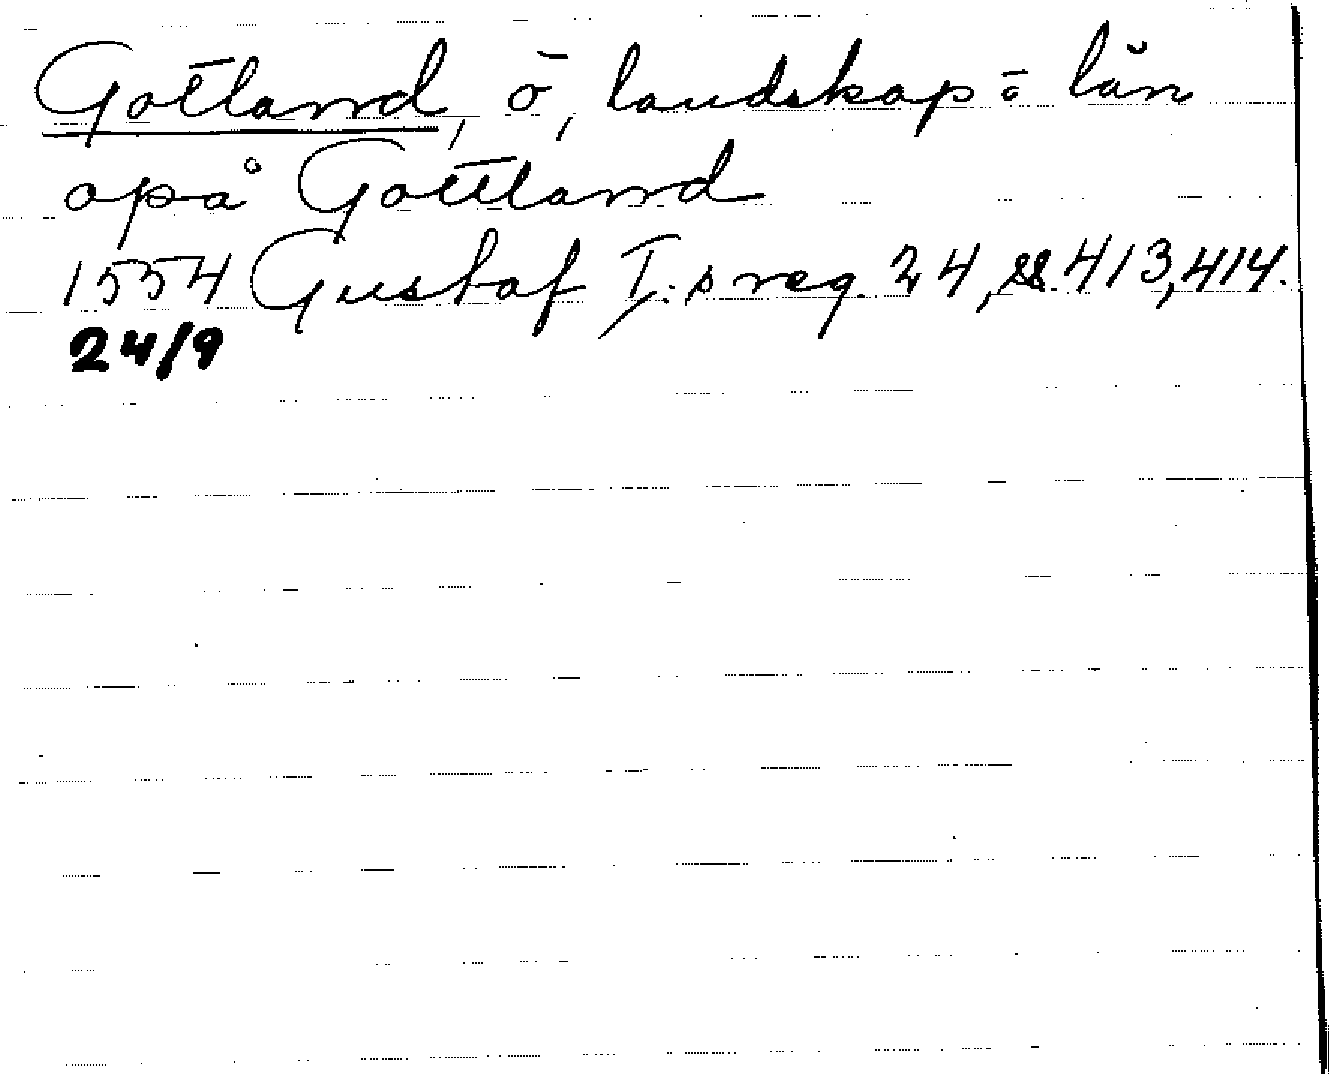 Gotland, ö, landskap o län
opå Gottland
1554 Gustaf I:s reg. 24, ss 413, 414.
24/9